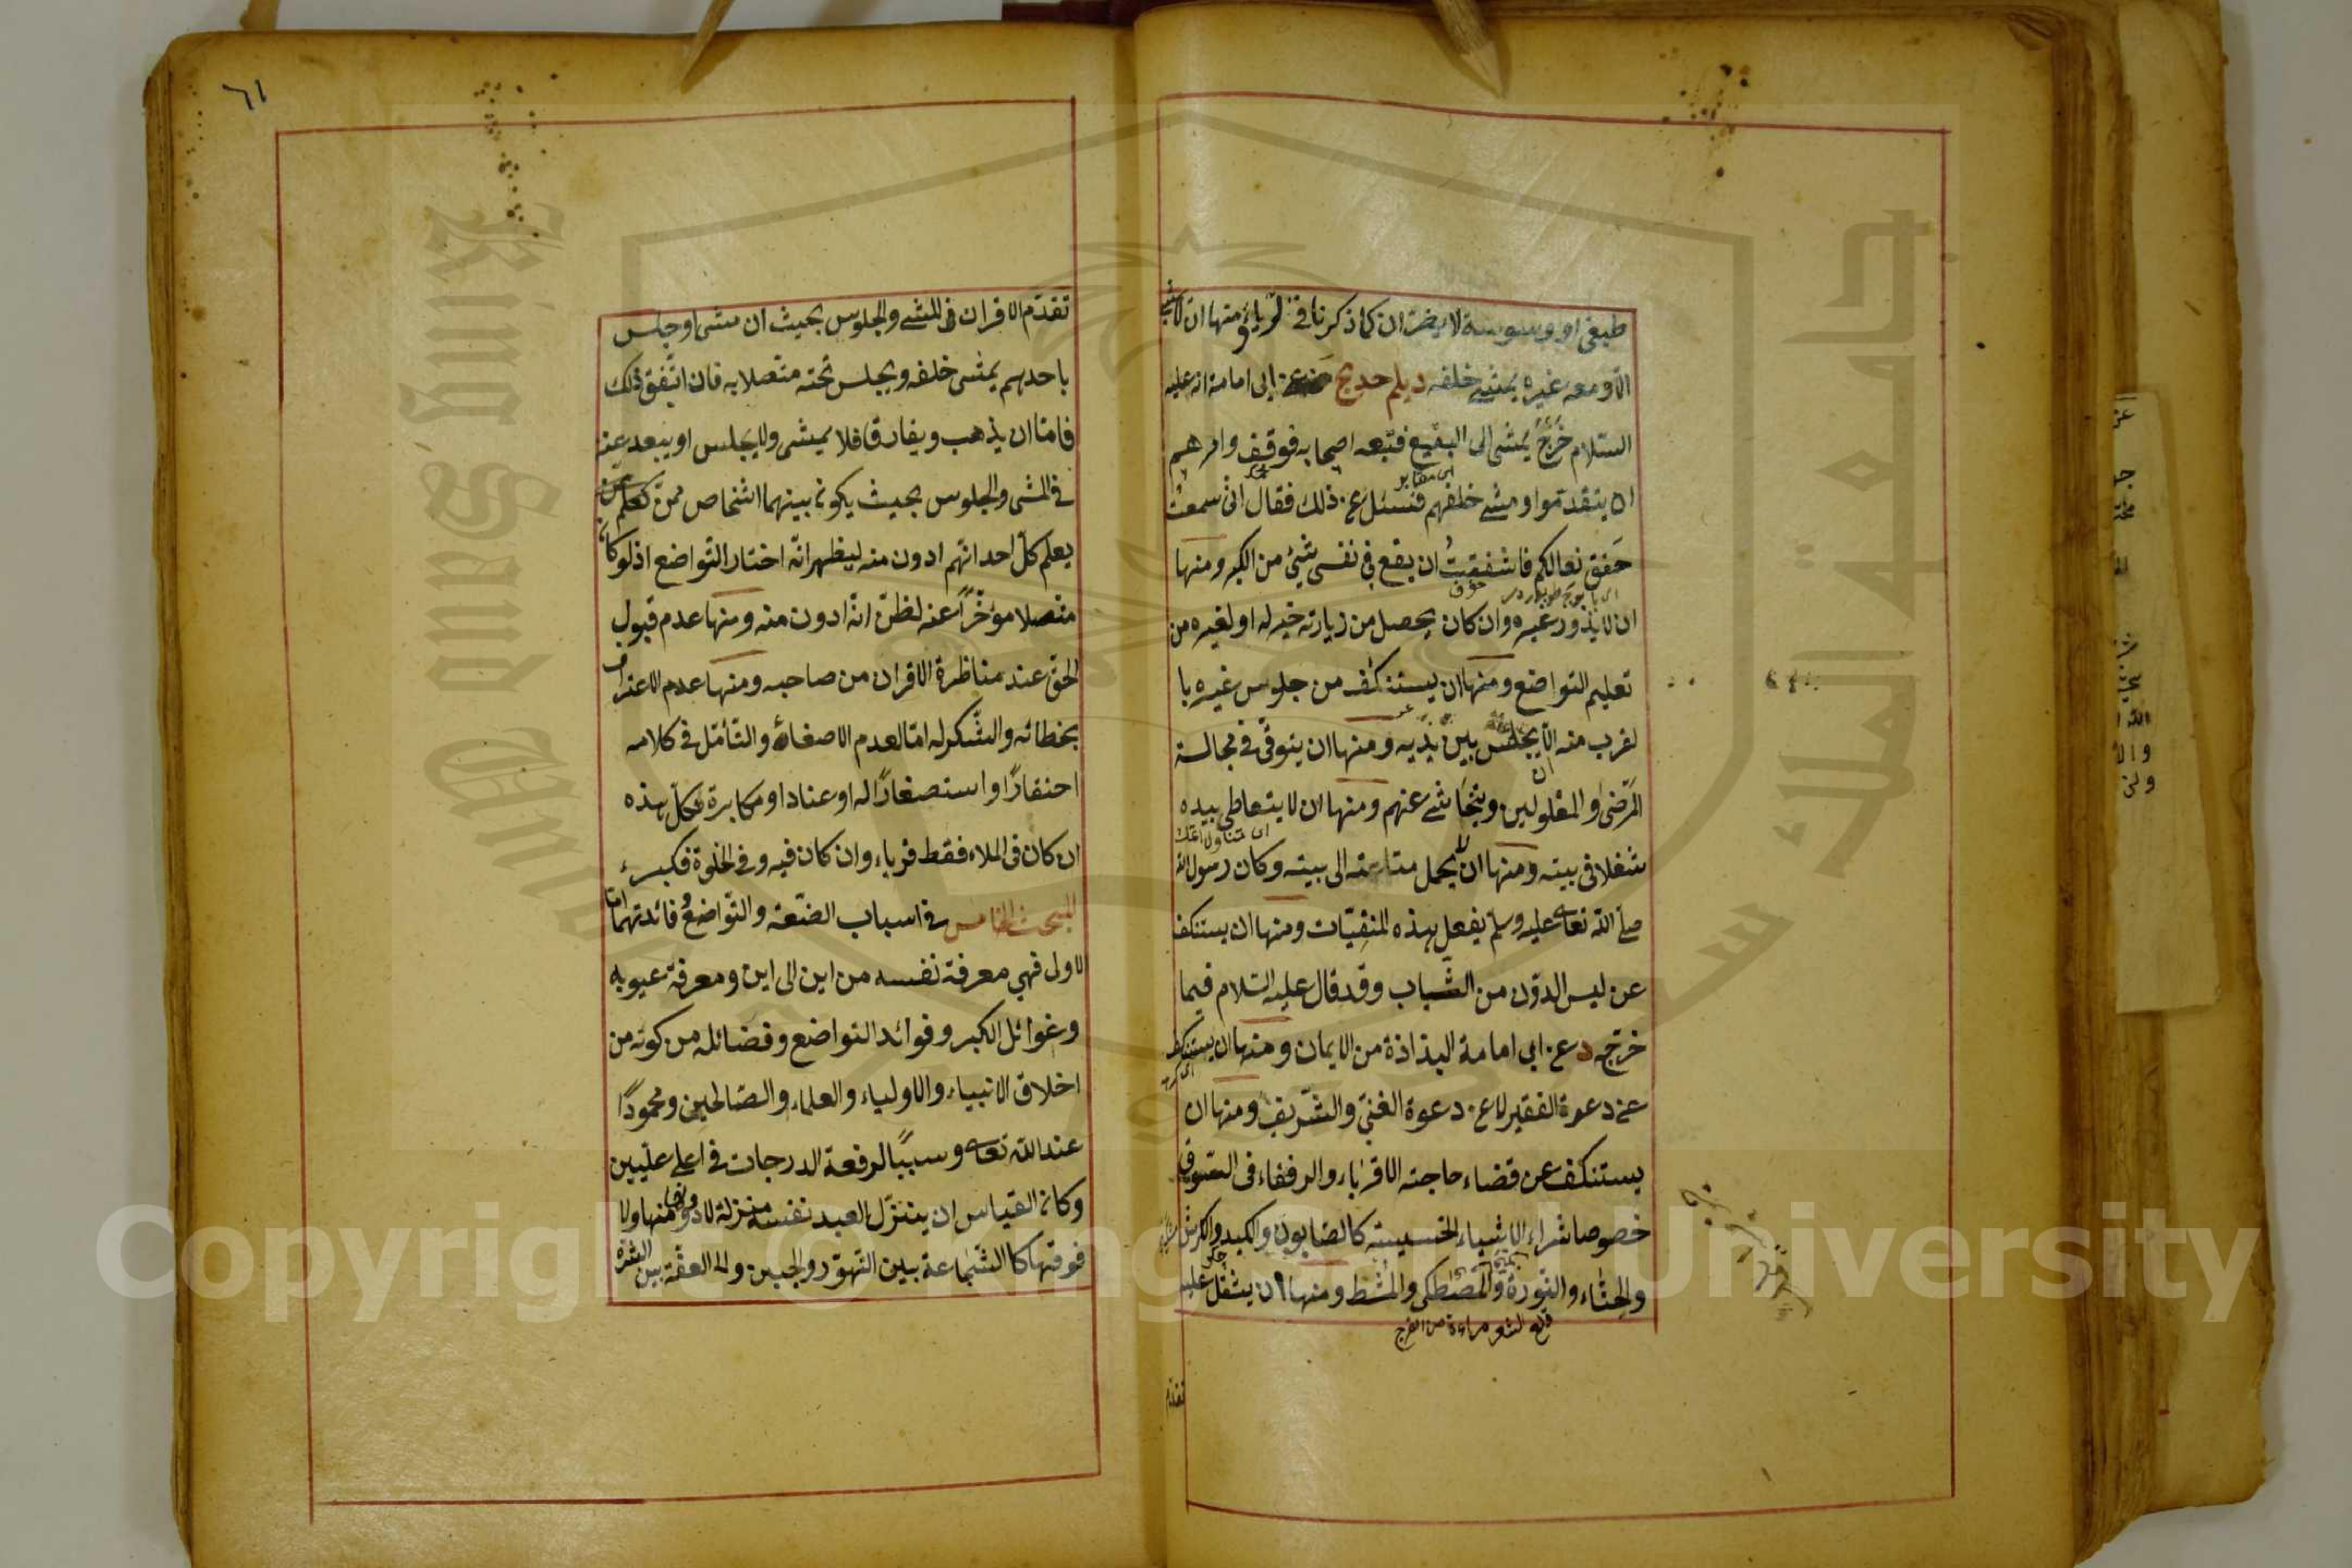 طبيعي او وسوسة لا يضران كما ذكرنا في الرياء ومنها ان لا يمشي
الا ومعه غيره يمشي خلفه ديلم حدج عن ابي امامة انه عليه
السلام خرج يمشى الى البقيع فتبعه اصحابه فوقف وامرهم
اى مقابر
ان يتقدموا ومشى خلفهم فسئل عن ذلك فقال انى سمعت
خفق نعالكم فاشفقت ان يقع فى نفسى شيئ من الكبر ومنها
خوف
ان لا يذور غيره وان كان يحصل من زيارته خير له او لغيره من
تعليم التواضع ومنها ان يستنكف من جلوس غيره با
لقرب منه الا ان يجلس بين يديه ومنها ان يتوقى فى مجالسة
المرضى والمعلولين ويتحاشى عنهم ومنها ان لا يتعاطى بيده
شغلا فى بيته ومنها ان لا يحمل متاعه الى بيته وكان رسول الله
صلى الله تعالى عليه وسلم يفعل هذه المنفيات ومنها ان يستنكف
عن لبس الدون من الثياب وقد قال عليه السلام فيما
خرّجه د عن ابى امامة البذاذة من الايمان ومنها ان يستنكف
عن دعوة الفقير لا عن دعوة الغنى والشريف ومنها ان
يستنكف عن قضاء حاجته الاقرباء والرفقاء فى السوق
خصوصا شراء الاشياء الخسيسة كالصابون والكبد والكرش
والحناء والنورة والمصطكى والمشط ومنها ان يثقل عليه
تقدم
٦١
تقدّم الاقران فى المشى والجلوس بحيث ان مشى او جلس
باحدهم يمشى خلفه ويجلس تحته متصلا به فان اتفق ذلك
فامّا ان يذهب ويفارق فلا يمشى ولا يجلس او يبعد عنه
فى المشى والجلوس بحيث يكون بينهما اشخاص ممن
يعلم كلّ احد انّهم ادون منه ليظهر انّه اختار التواضع اذ لو كان
متصلا مؤخّرا عنه لظنّ انه ادون منه ومنها عدم قبول
الحق عند مناظرة الاقران من صاحبه ومنها عدم الاعتراف
بخطائه والشكر له امّا لعدم الاصغاء والتأمّل فى كلامه
احتقارًا واستصغارًا له او عنادا ومكابرة فكلّ هذه
ان كان فى الملاء فقط فرياء وان كان فيه وفى الخلوة فكبر
المبحث الخامس فى اسباب الضعة والتواضع وفائدتهما اما
الاول فهي معرفة نفسه من اين الى اين ومعرفة عيوبه
وغوائل الكبر وفوائد التواضع وفضائله من كونه من
اخلاق الانبياء والاولياء والعلماء والصالحين ومحمودًا
عند الله تعالى وسببًا لرفعة الدرجات فى اعلى عليين
وكان القياس ان ينزّل العبد نفسه منزلة لا دونها منها ولا
فوقها كالشجاعة بين التهوّر والجبن والعفّة بين الشره